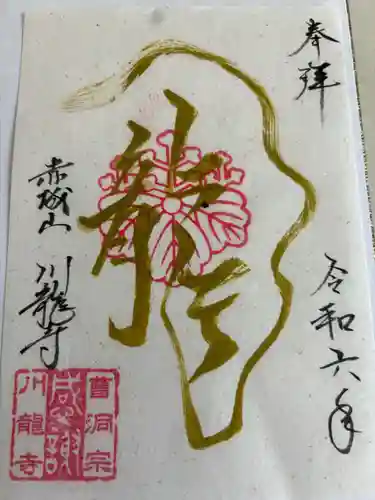 奉拝
令和六年
龍
赤城山
川龍寺
曹洞宗
感謝
川龍寺